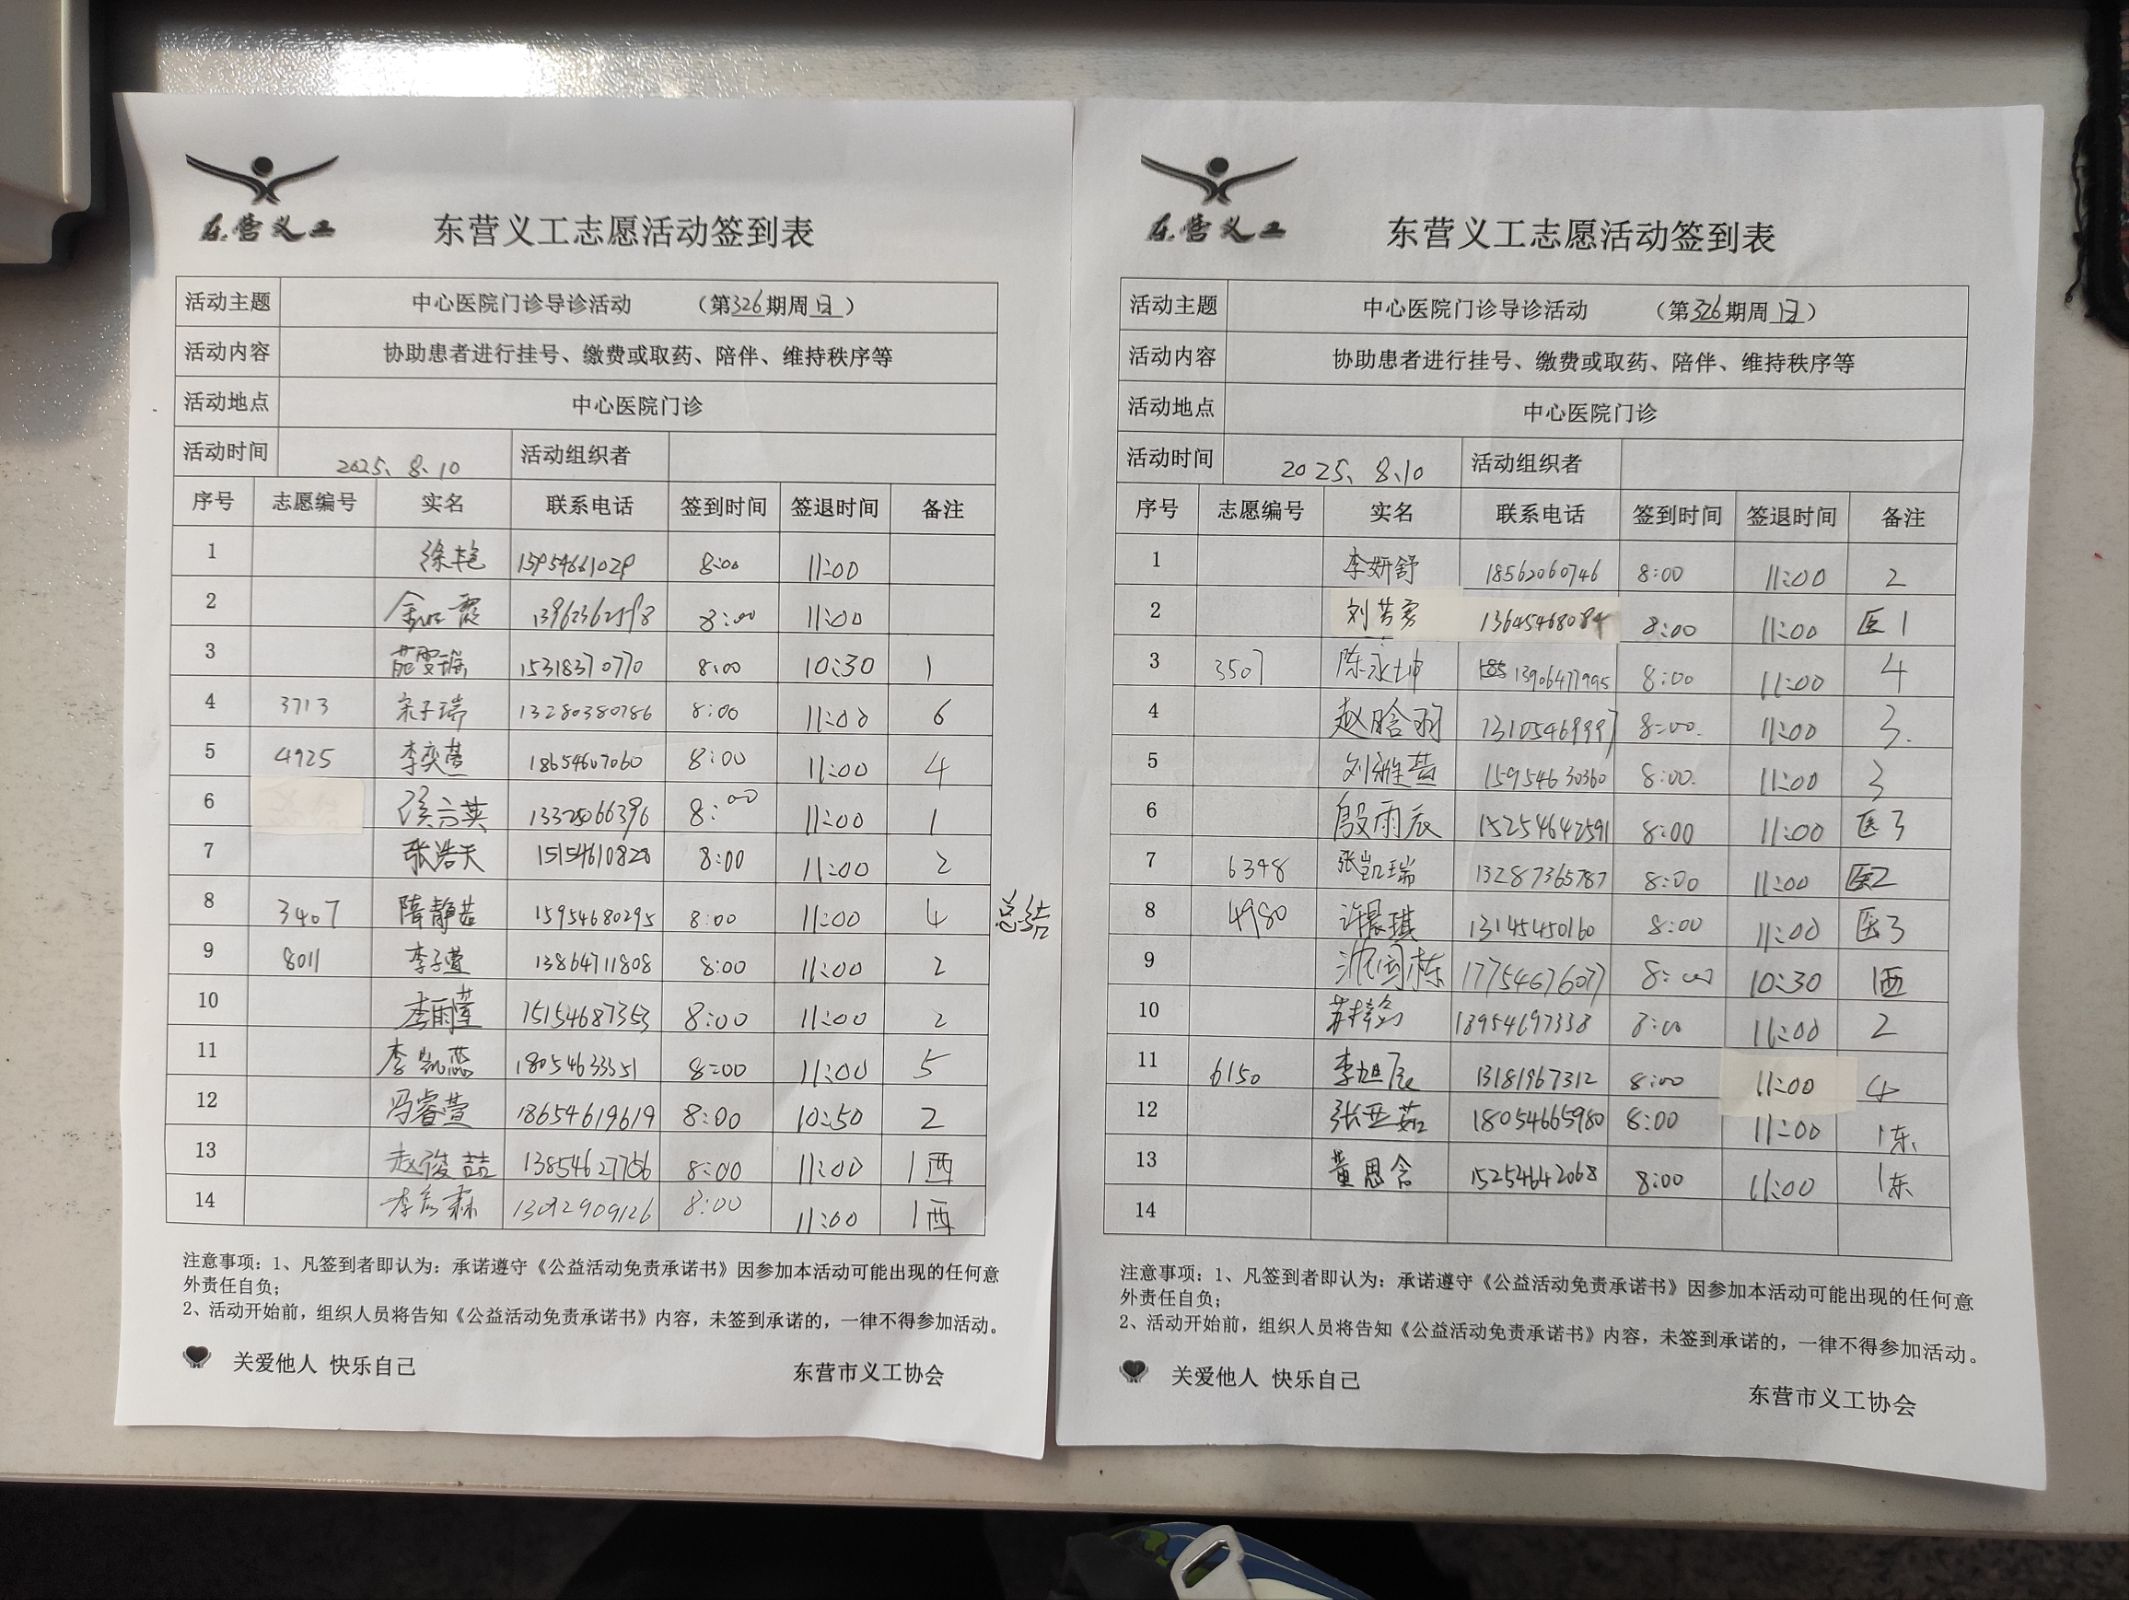 东营义工
东营义工志愿活动签到表
活动主题 中心医院门诊导诊活动 （第326期周日）
活动内容 协助患者进行挂号、缴费或取药、陪伴、维持秩序等
活动地点 中心医院门诊
活动时间 2025、8、10 活动组织者
序号 志愿编号 实名 联系电话 签到时间 签退时间 备注
1 徐艳 15954661029 8:00 11:00
2 13963362598 8:00 11:00
3 15318370770 8:00 10:30 1
4 3713 宋子瑞 13280380786 8:00 11:00 6
5 4925 李奕萱 18654607060 8:00 11:00 4
6 侯方英 8:00 11:00 1
7 张浩天 15154610828 8:00 11:00 2
8 3407 隋静茹 15954680295 8:00 11:00 4 总结
9 8011 李子萱 13864711808 8:00 11:00 2
10 李雨萱 15154687353 8:00 11:00 2
11 李凯蕊 18054633351 8:00 11:00 5
12 冯睿萱 18654619619 8:00 10:50 2
13 赵俊喆 13854627756 8:00 11:00 1西
14 李彦霖 13092909126 8:00 11:00 1西
注意事项：1、凡签到者即认为：承诺遵守《公益活动免责承诺书》因参加本活动可能出现的任何意
外责任自负；
2、活动开始前，组织人员将告知《公益活动免责承诺书》内容，未签到承诺的，一律不得参加活动。
关爱他人 快乐自己
东营市义工协会
东营义工
东营义工志愿活动签到表
活动主题 中心医院门诊导诊活动 （第326期周日）
活动内容 协助患者进行挂号、缴费或取药、陪伴、维持秩序等
活动地点 中心医院门诊
活动时间 2025、8、10 活动组织者
序号 志愿编号 实名 联系电话 签到时间 签退时间 备注
1 李妍舒 18562060746 8:00 11:00 2
2 刘芳秀 13645468084 8:00 11:00 医1
3 3507 陈永坤 13906477995 8:00 11:00 4
4 赵晗羽 13105469997 8:00. 11:00 3.
5 刘雅萱 15954630360 8:00. 11:00 3
6 殷雨辰 15254642591 8:00 11:00 医3
7 6348 张凯瑞 13287365787 8:00 11:00 医2
8 4980 许晨琪 13145450160 8:00 11:00 医3
9 沈闰栋 17754676077 8:00 10:30 1西
10 18954697338 8:00 11:00 2
11 6150 李旭辰 13181967312 8:00 11:00 4
12 张亚茹 18054665980 8:00 11:00 1东
13 董思含 15254642068 8:00 11:00 1东
14
注意事项：1、凡签到者即认为：承诺遵守《公益活动免责承诺书》因参加本活动可能出现的任何意
外责任自负；
2、活动开始前，组织人员将告知《公益活动免责承诺书》内容，未签到承诺的，一律不得参加活动。
关爱他人 快乐自己
东营市义工协会